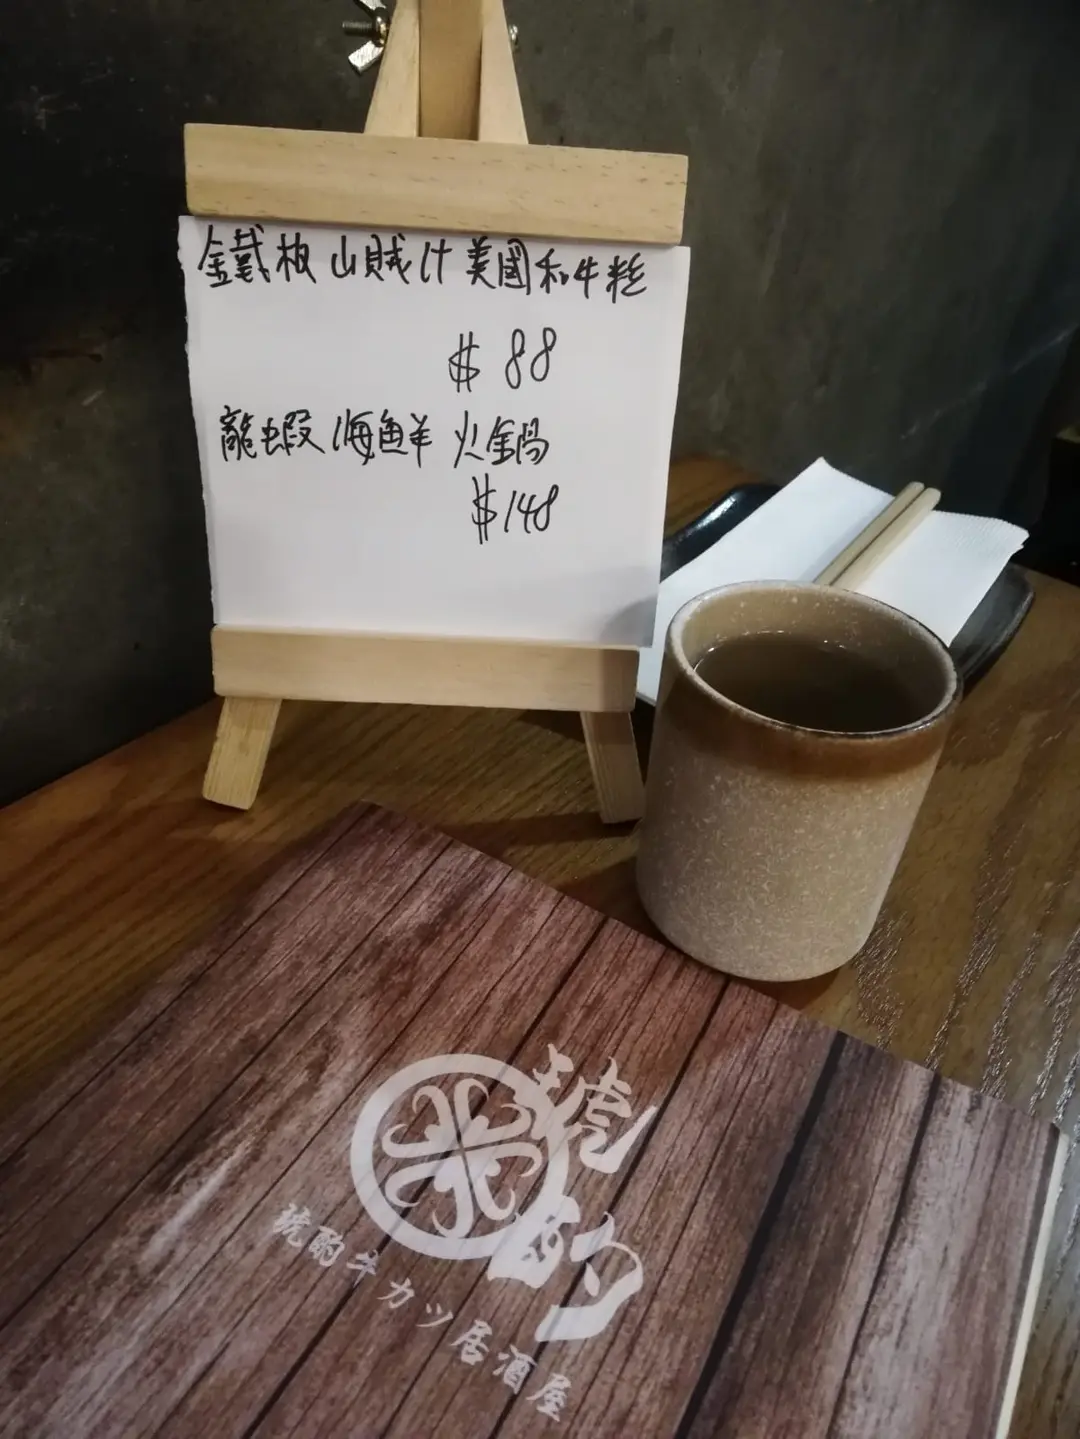 鐵板山賊汁美國和牛粒
$88
龍蝦海鮮火鍋
$148
琥酌
琥酌牛カツ居酒屋